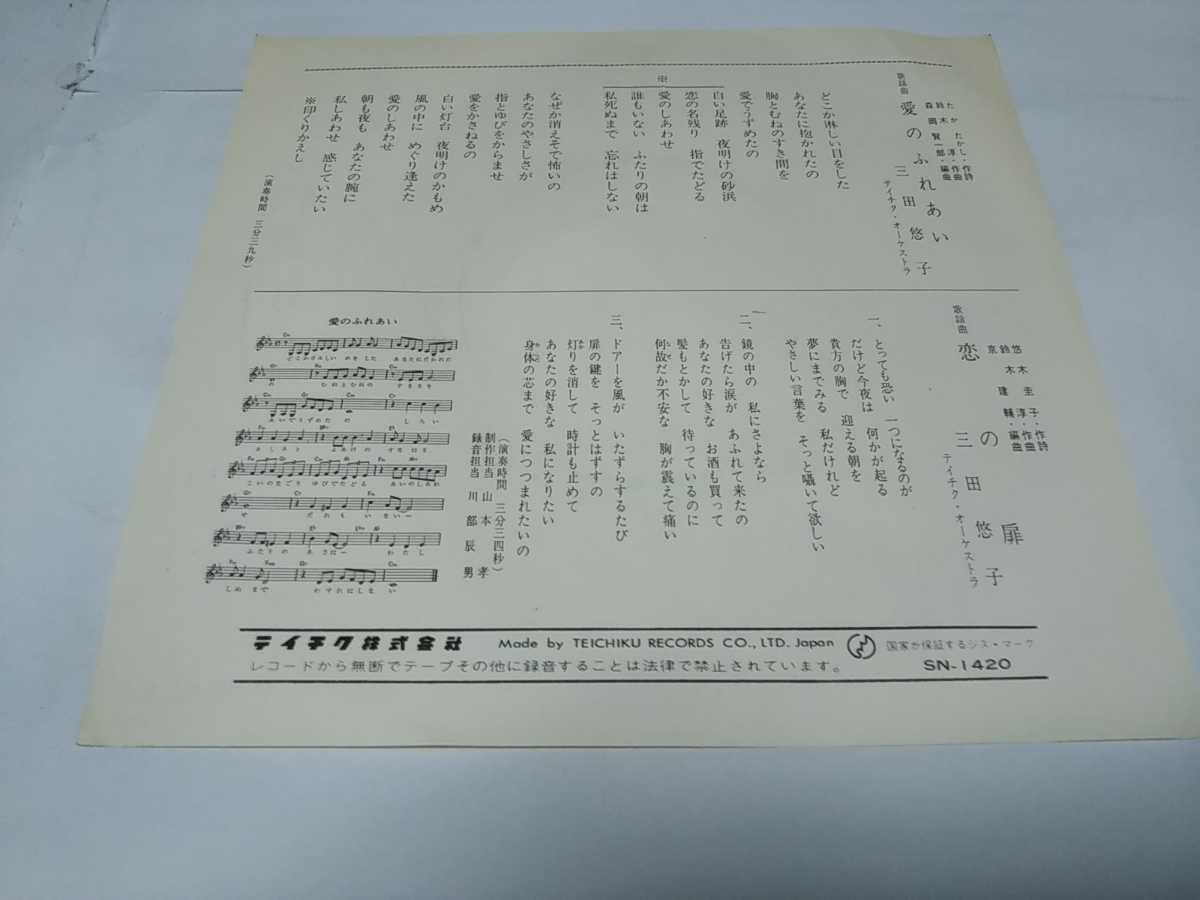 歌謡曲
愛のふれあい
たか たかし・作詩
鈴木 淳・作曲
森岡賢一郎・編曲
三田悠子
テイチク・オーケストラ
どこか淋しい目をした
あなたに抱かれたの
胸とむねのすき間を
愛でうずめたの
白い足跡 夜明けの砂浜
恋の名残り 指でたどる
愛のしあわせ
誰もいない ふたりの朝は
私死ぬまで 忘れはしない
※
なぜか消えそで怖いの
あなたのやさしさが
指とゆびをからませ
愛をかさねるの
白い灯台 夜明けのかもめ
風の中に めぐり逢えた
愛のしあわせ
朝も夜も あなたの腕に
私しあわせ 感じていたい
※印くりかえし
(演奏時間 三分三九秒)
歌謡曲
恋の扉
悠木圭子・作詩
鈴木 淳・作曲
京 建輔・編曲
三田悠子
テイチク・オーケストラ
一、とっても恐い 一つになるのが
だけど今夜は 何かが起る
貴方の胸で 迎える朝を
夢にまでみる 私だけれど
やさしい言葉を そっと囁いて欲しい
二、鏡の中の 私にさよなら
告げたら涙が あふれて来たの
あなたの好きな お酒も買って
髪もとかして 待っているのに
何故だか不安な 胸が震えて痛い
三、ドアーを風が いたずらするたび
扉の鍵を そっとはずすの
灯りを消して 時計も止めて
あなたの好きな 私になりたい
身体の芯まで 愛につつまれたいの
(演奏時間 三分三四秒)
制作担当 山本 孝
録音担当 川部辰男
愛のふれあい
どこかさみしい めをした あなたにだかれた
の むねとむねの すきまを
あいでうずめたの しろい
あしあと よあけの すなはま
こいのなごり ゆびでたどる あいのしあわ
せ だれも いない
ふたりの あさは わたし
しぬ まで わすれはしない
テイチク株式会社 Made by TEICHIKU RECORDS CO., LTD. Japan 国家が保証するジス・マーク
レコードから無断でテープその他に録音することは法律で禁止されています。 SN-1420